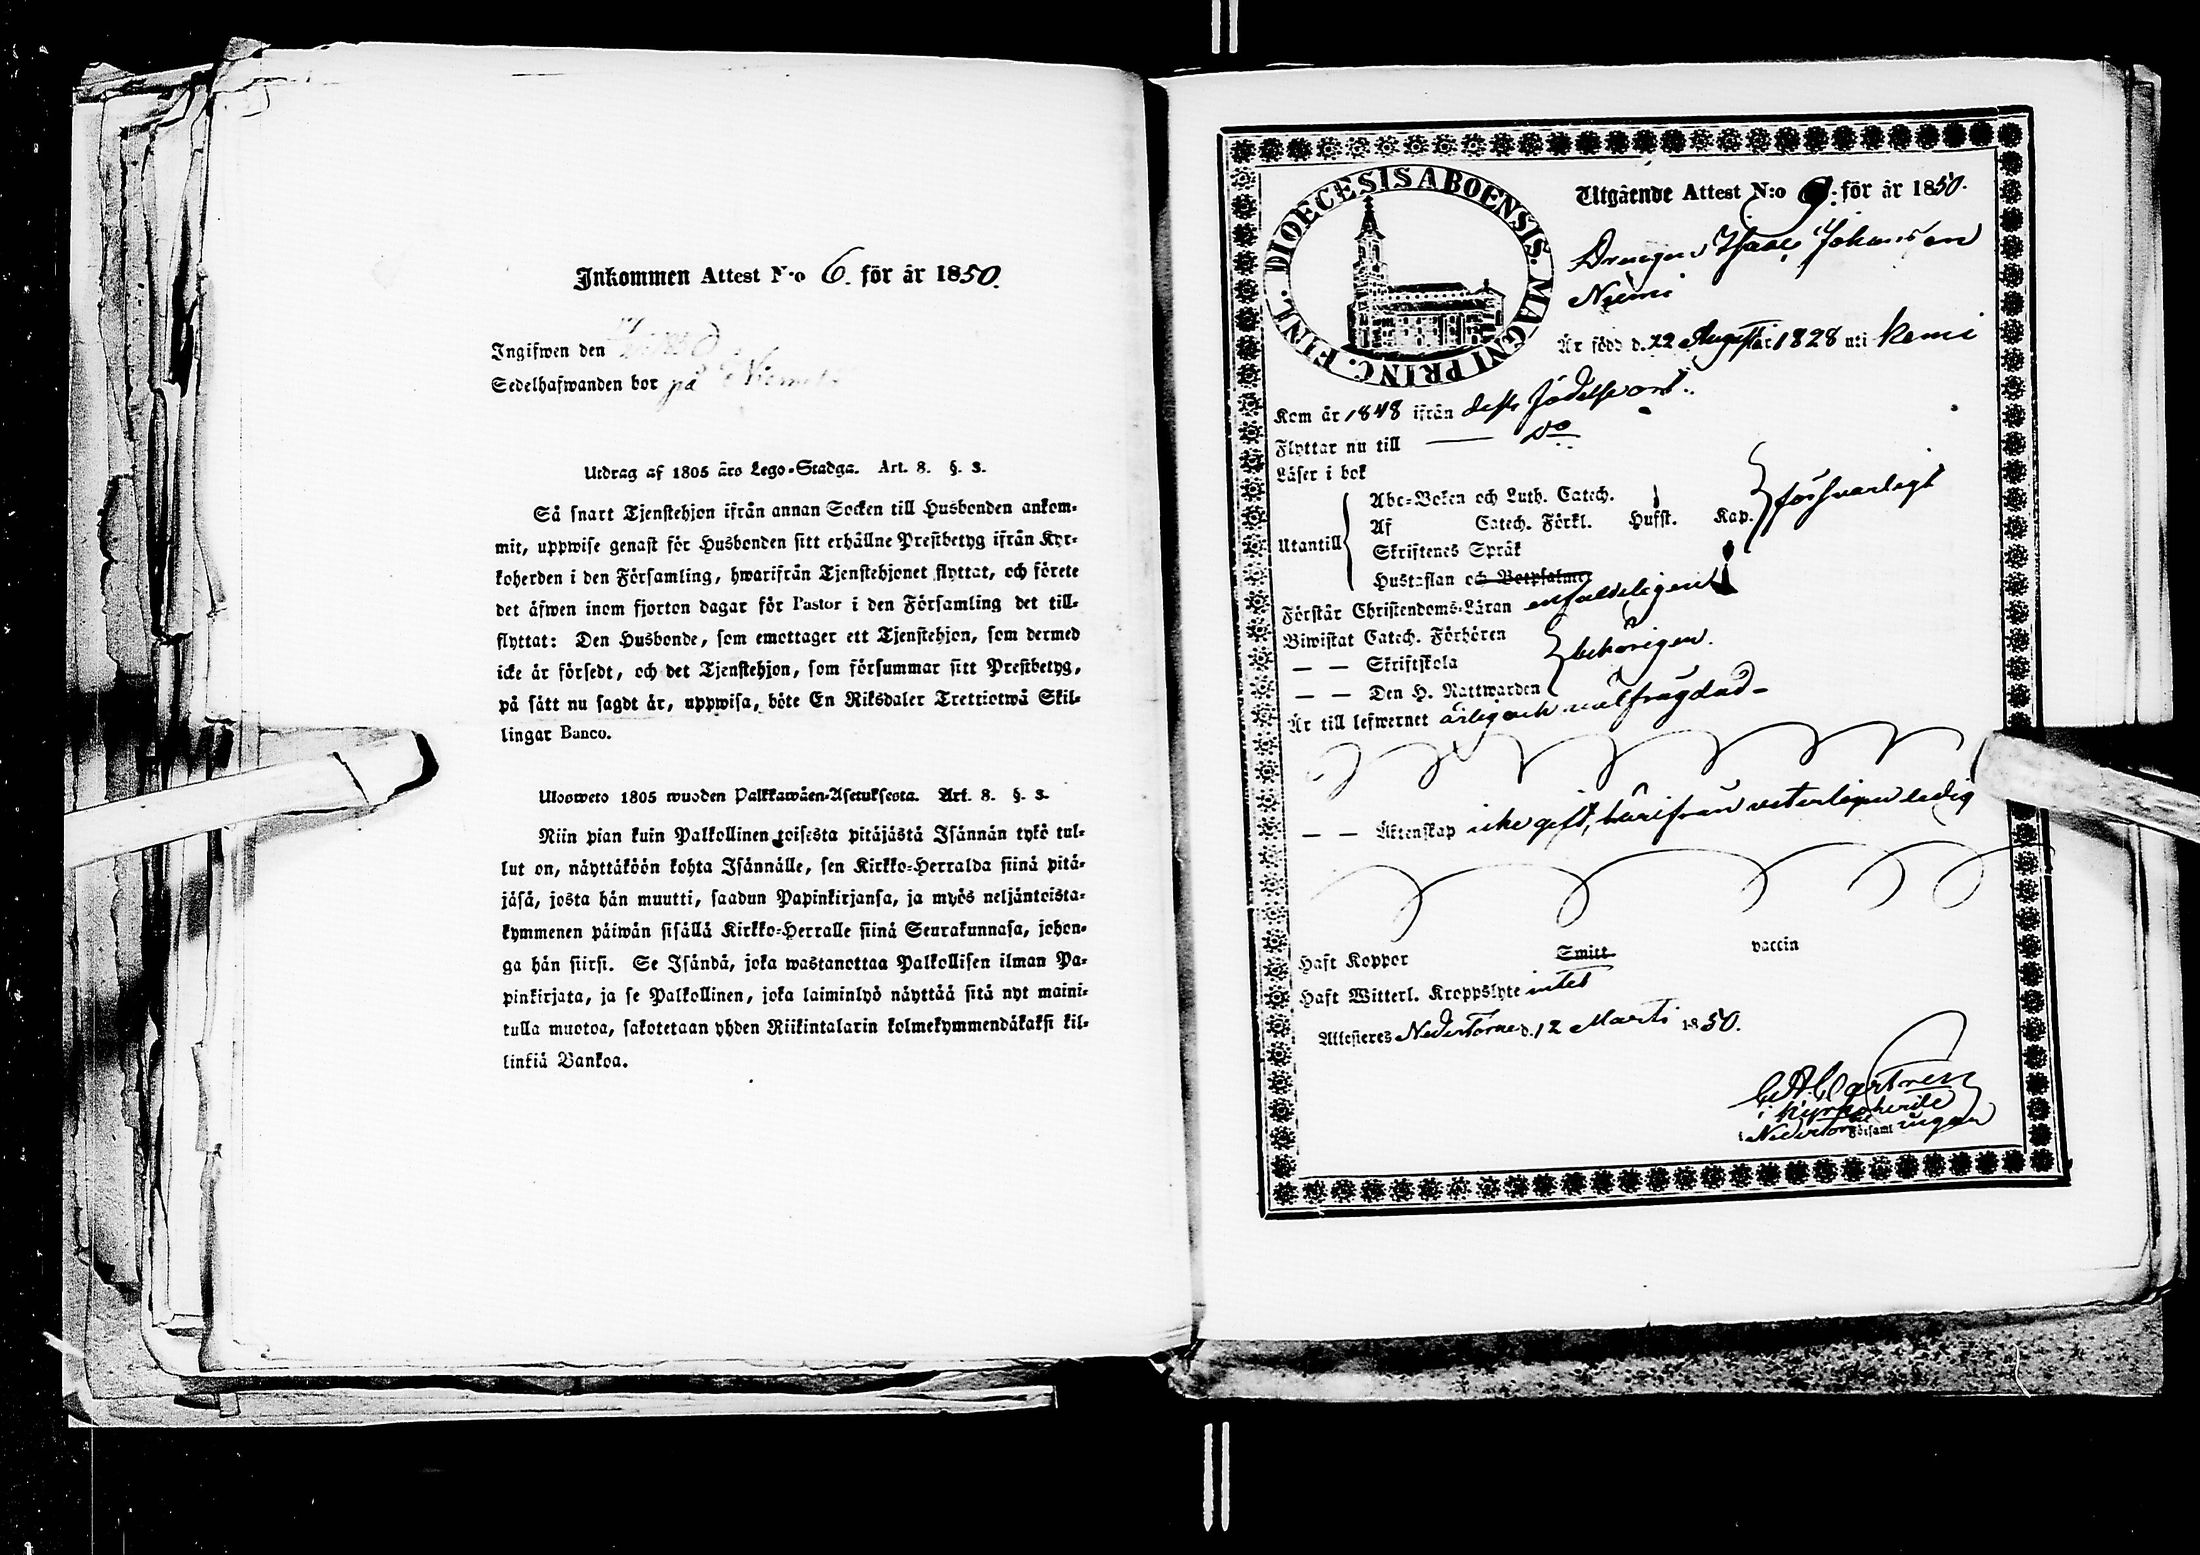 Inkommen Attest N:o 6. för år 1850.
Ingifwen den
Sedelhafwanden bor på
Utdrag af 1805 års Lego-Stadga. Art. 8. §. 3.
Så snart Tjenstehjon ifrån annan Socken till Husbonden ankom-
mit, uppwise genast för Husbonden sitt erhållne Prestbetyg ifrån Kyr-
koherden i den Församling, hwarifrån Tjenstehjonet flyttat, och förete
det äfwen inom fjorton dagar för Pastor i den Församling det till-
flyttat: Den Husbonde, som emottager ett Tjenstehjon, som dermed
icke är försedt, och det Tjenstehjon, som försummar sitt Prestbetyg,
på sätt nu sagdt är, uppwisa, böte En Riksdaler Trettiotwå Skil-
lingar Banco.
Ulosweto 1805 wuoden Palkkawäen-Asetuksesta. Art. 8. §. 3.
Niin pian kuin Palkollinen toisesta pitäjästä Isännän tykö tul-
lut on, näyttäköön kohta Isännälle, sen Kirkko-Herralda siinä pitä-
jäsä, josta hän muutti, saadun Papinkirjansa, ja myös neljäntoista-
kymmenen päiwän sisällä Kirkko-Herralle siinä Seurakunnasa, johon-
ga hän siirsi. Se Isändä, joka wastanottaa Palkollisen ilman Pa-
pinkirjata, ja se Palkollinen, joka laiminlyö näyttää sitä nyt maini-
tulla muotoa, sakotetaan yhden Riikintalarin kolmekymmendäkaksi kil-
linkiä Bankoa.
DIOECESIS ABOENSIS. MAGNI PRINC. FINL.
Utgående Attest N:o 9. för år 1850.
Drengen Isaac Johansson
Niemi
Är född d. 22 Augusti år 1828 uti Kemi
Kom år 1848 ifrån dess födelseort.
Flyttar nu till — Do
Läser i bok
Abc-Boken och Luth. Catech.
Af Catech. Förkl. Hufst. Kap. försvarligt
Utantill
Skriftenes Språk
Hustaflan och Botpsalme
Förstår Christendoms-Läran enfaldeligen
Biwistat Catech. Förhören
— — Skriftskola behörigen.
— — Den H. Nattwarden
Är till lefwernet ärlig och välfrägdad-
— — Äktenskap icke gift, härifrån veterligen ledig
Haft Koppor Smitt vaccin
Haft Witterl. Kroppslyte intet
Attesteres Nedertorne d. 12 Marti 1850.
C A Castren
Kyrkoherde
i Nedertorne Församlingen